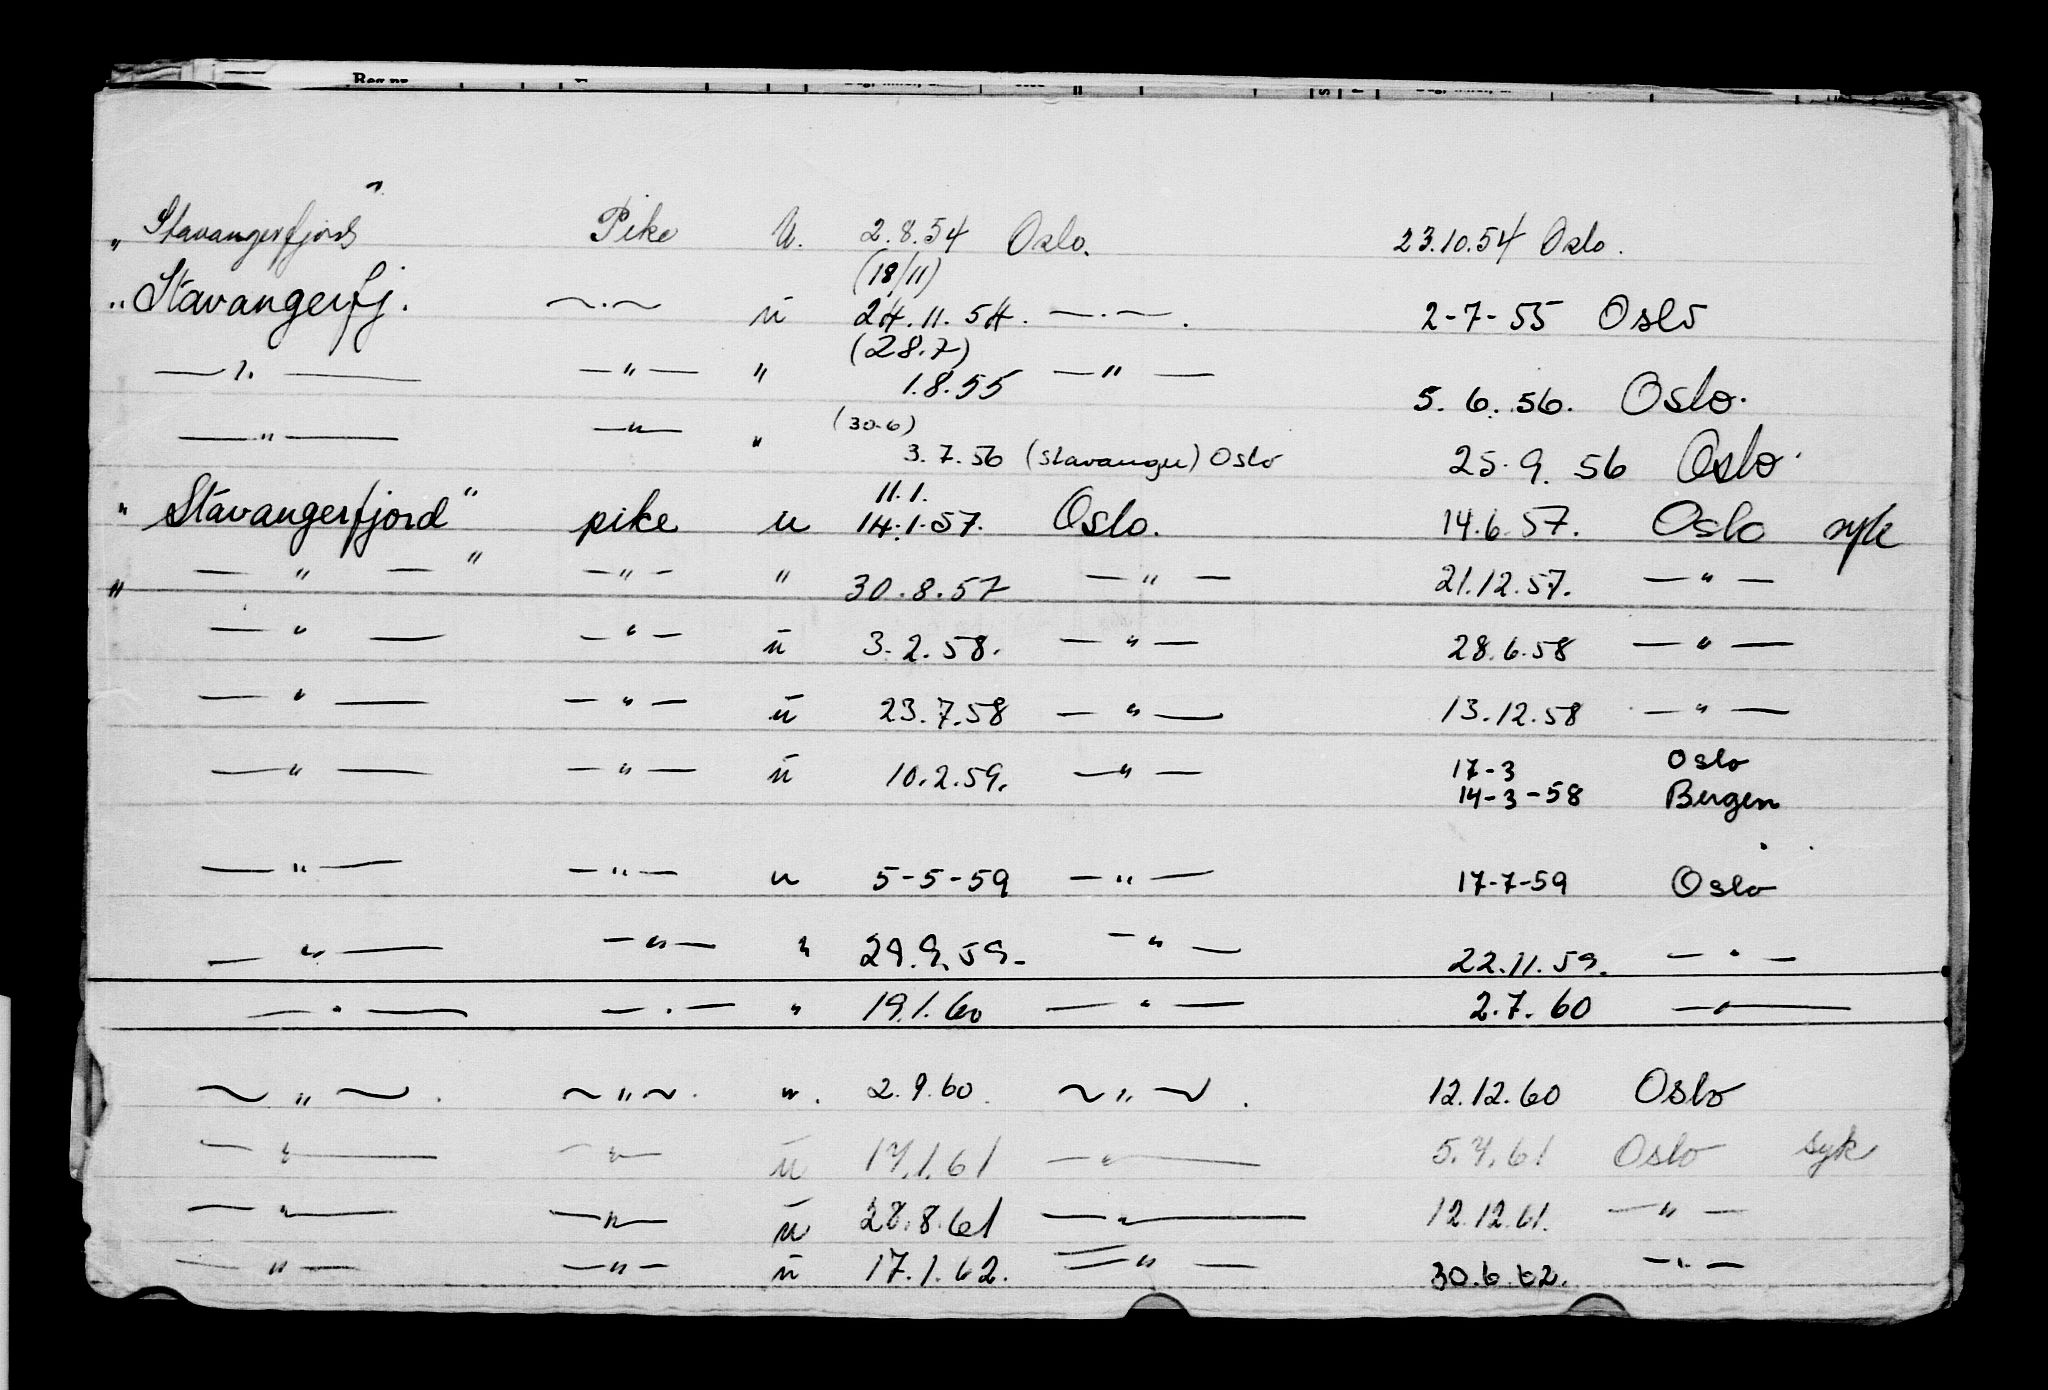 Reg.nr.
„ Stavangerfjord " Pike U. 2.8.54 Oslo. 23.10.54 Oslo.
(18/11)
„ Stavangerfj. ~ . ~ u 24.11.54. — . — . 2-7-55 Oslo
(28.7)
— " — — " — " 1.8.55 — " — 5.6.56. Oslo.
(30.6)
— " — — " — " 3.7.56 (Stavanger) Oslo 25.9.56 Oslo
11.1.
" Stavangerfjord " pike u 14.1.57. Oslo. 14.6.57. Oslo syk
" — " — " — " — " 30.8.57 — " — 21.12.57. — " —
— " — — " — u 3.2.58. — " — 28.6.58 — " —
— " — — " — u 23.7.58 — " — 13.12.58 — " —
— " — — " — u 10.2.59. — " — 17-3 Oslo
14-3-58 Bergen
— " — — " — u 5-5-59 — " — 17-7-59 Oslo
— " — — " — " 29.9.59. — " — 22.11.59. — " —
— " — — . — " 19.1.60 — " — 2.7.60 — " —
~ „ ~ . ~ " ~ . ". 2.9.60. ~ " ~ . 12.12.60 Oslo
— " — — " — u 17.1.61 — " — 5.4.61 Oslo syk
— " — — " — u 28.8.61 — " — 12.12.61. — " —
— " — — " — u 17.1.62. — " — 30.6.62. — " —